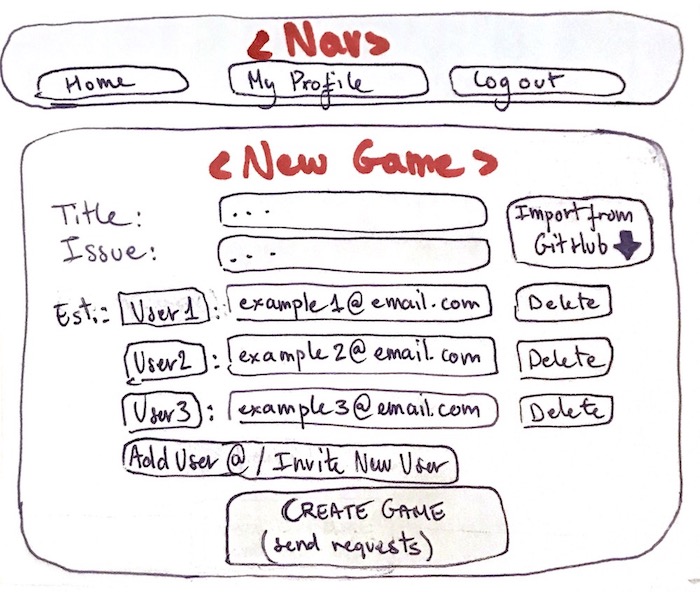 <Nav>
Home My Profile Logout
<New Game>
Title: ...
Issue: ...
Import from
GitHub
Est.: User1 : example1@email.com Delete
User2 : example2@email.com Delete
User3 : example3@email.com Delete
Add User @ / Invite New User
CREATE GAME
(send requests)